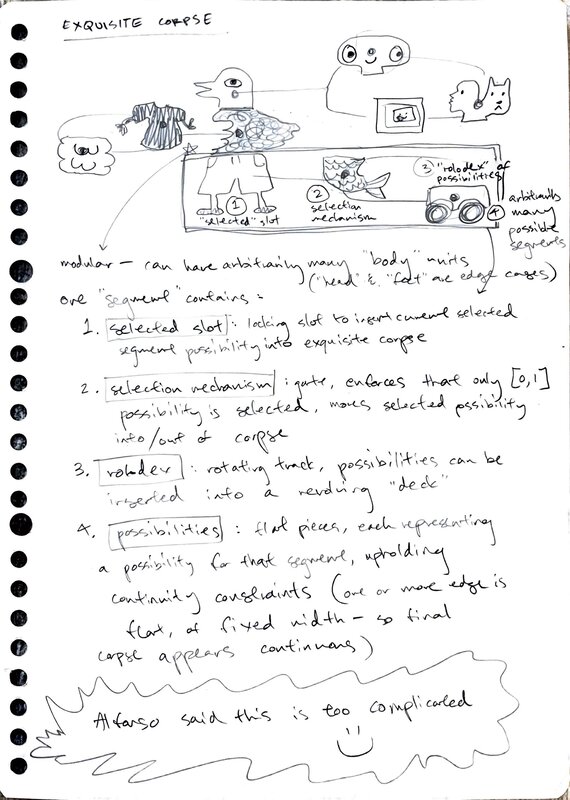 EXQUISITE CORPSE
③ "rolodex" of
possibilities
① "selected" slot
② selection
mechanism
④ arbitrarily
many
possible
segments
modular — can have arbitrarily many "body" units
("head" & "feet" are edge cases)
one "segment" contains:
1. selected slot : locking slot to insert current selected
segment possibility into exquisite corpse
2. selection mechanism : gate, enforces that only [0,1]
possibility is selected, moves selected possibility
into/out of corpse
3. rolodex : rotating track, possibilities can be
inserted into a revolving "deck"
4. possibilities : flat pieces, each representing
a possibility for that segment, upholding
continuity constraints (one or more edge is
flat, of fixed width — so final
corpse appears continuous)
Alfonso said this is too complicated